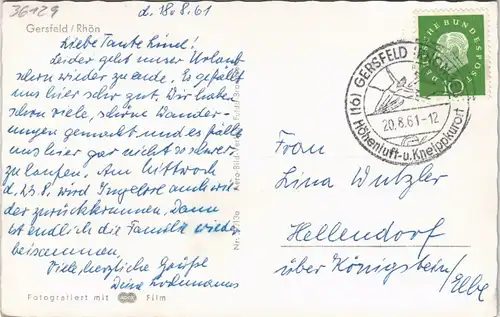 36129
d. 18.8.61
Gersfeld / Rhön
Liebe Tante Lina!
Leider geht unser Urlaub
schon wieder zu ende. Es gefällt
uns hier sehr gut. Wir haben
schon viele, schöne Wander-
ungen gemacht und es fällt
uns hier gar nicht so schwer,
zu laufen. Am Mittwoch
d. 23.8. wird Ingelore auch wie-
der zurückkommen. Dann
ist endlich die Familie wieder
beisammen.
Viele, herzliche Grüße
Deine
Fotografiert mit AGFA Film
DEUTSCHE BUNDESPOST
10
(16) GERSFELD (RHÖN)
20.8.61-12
Höhenluft-u.Kneippkurort
Frau
Lina Wutzler
Hellendorf
über Königstein/
Elbe